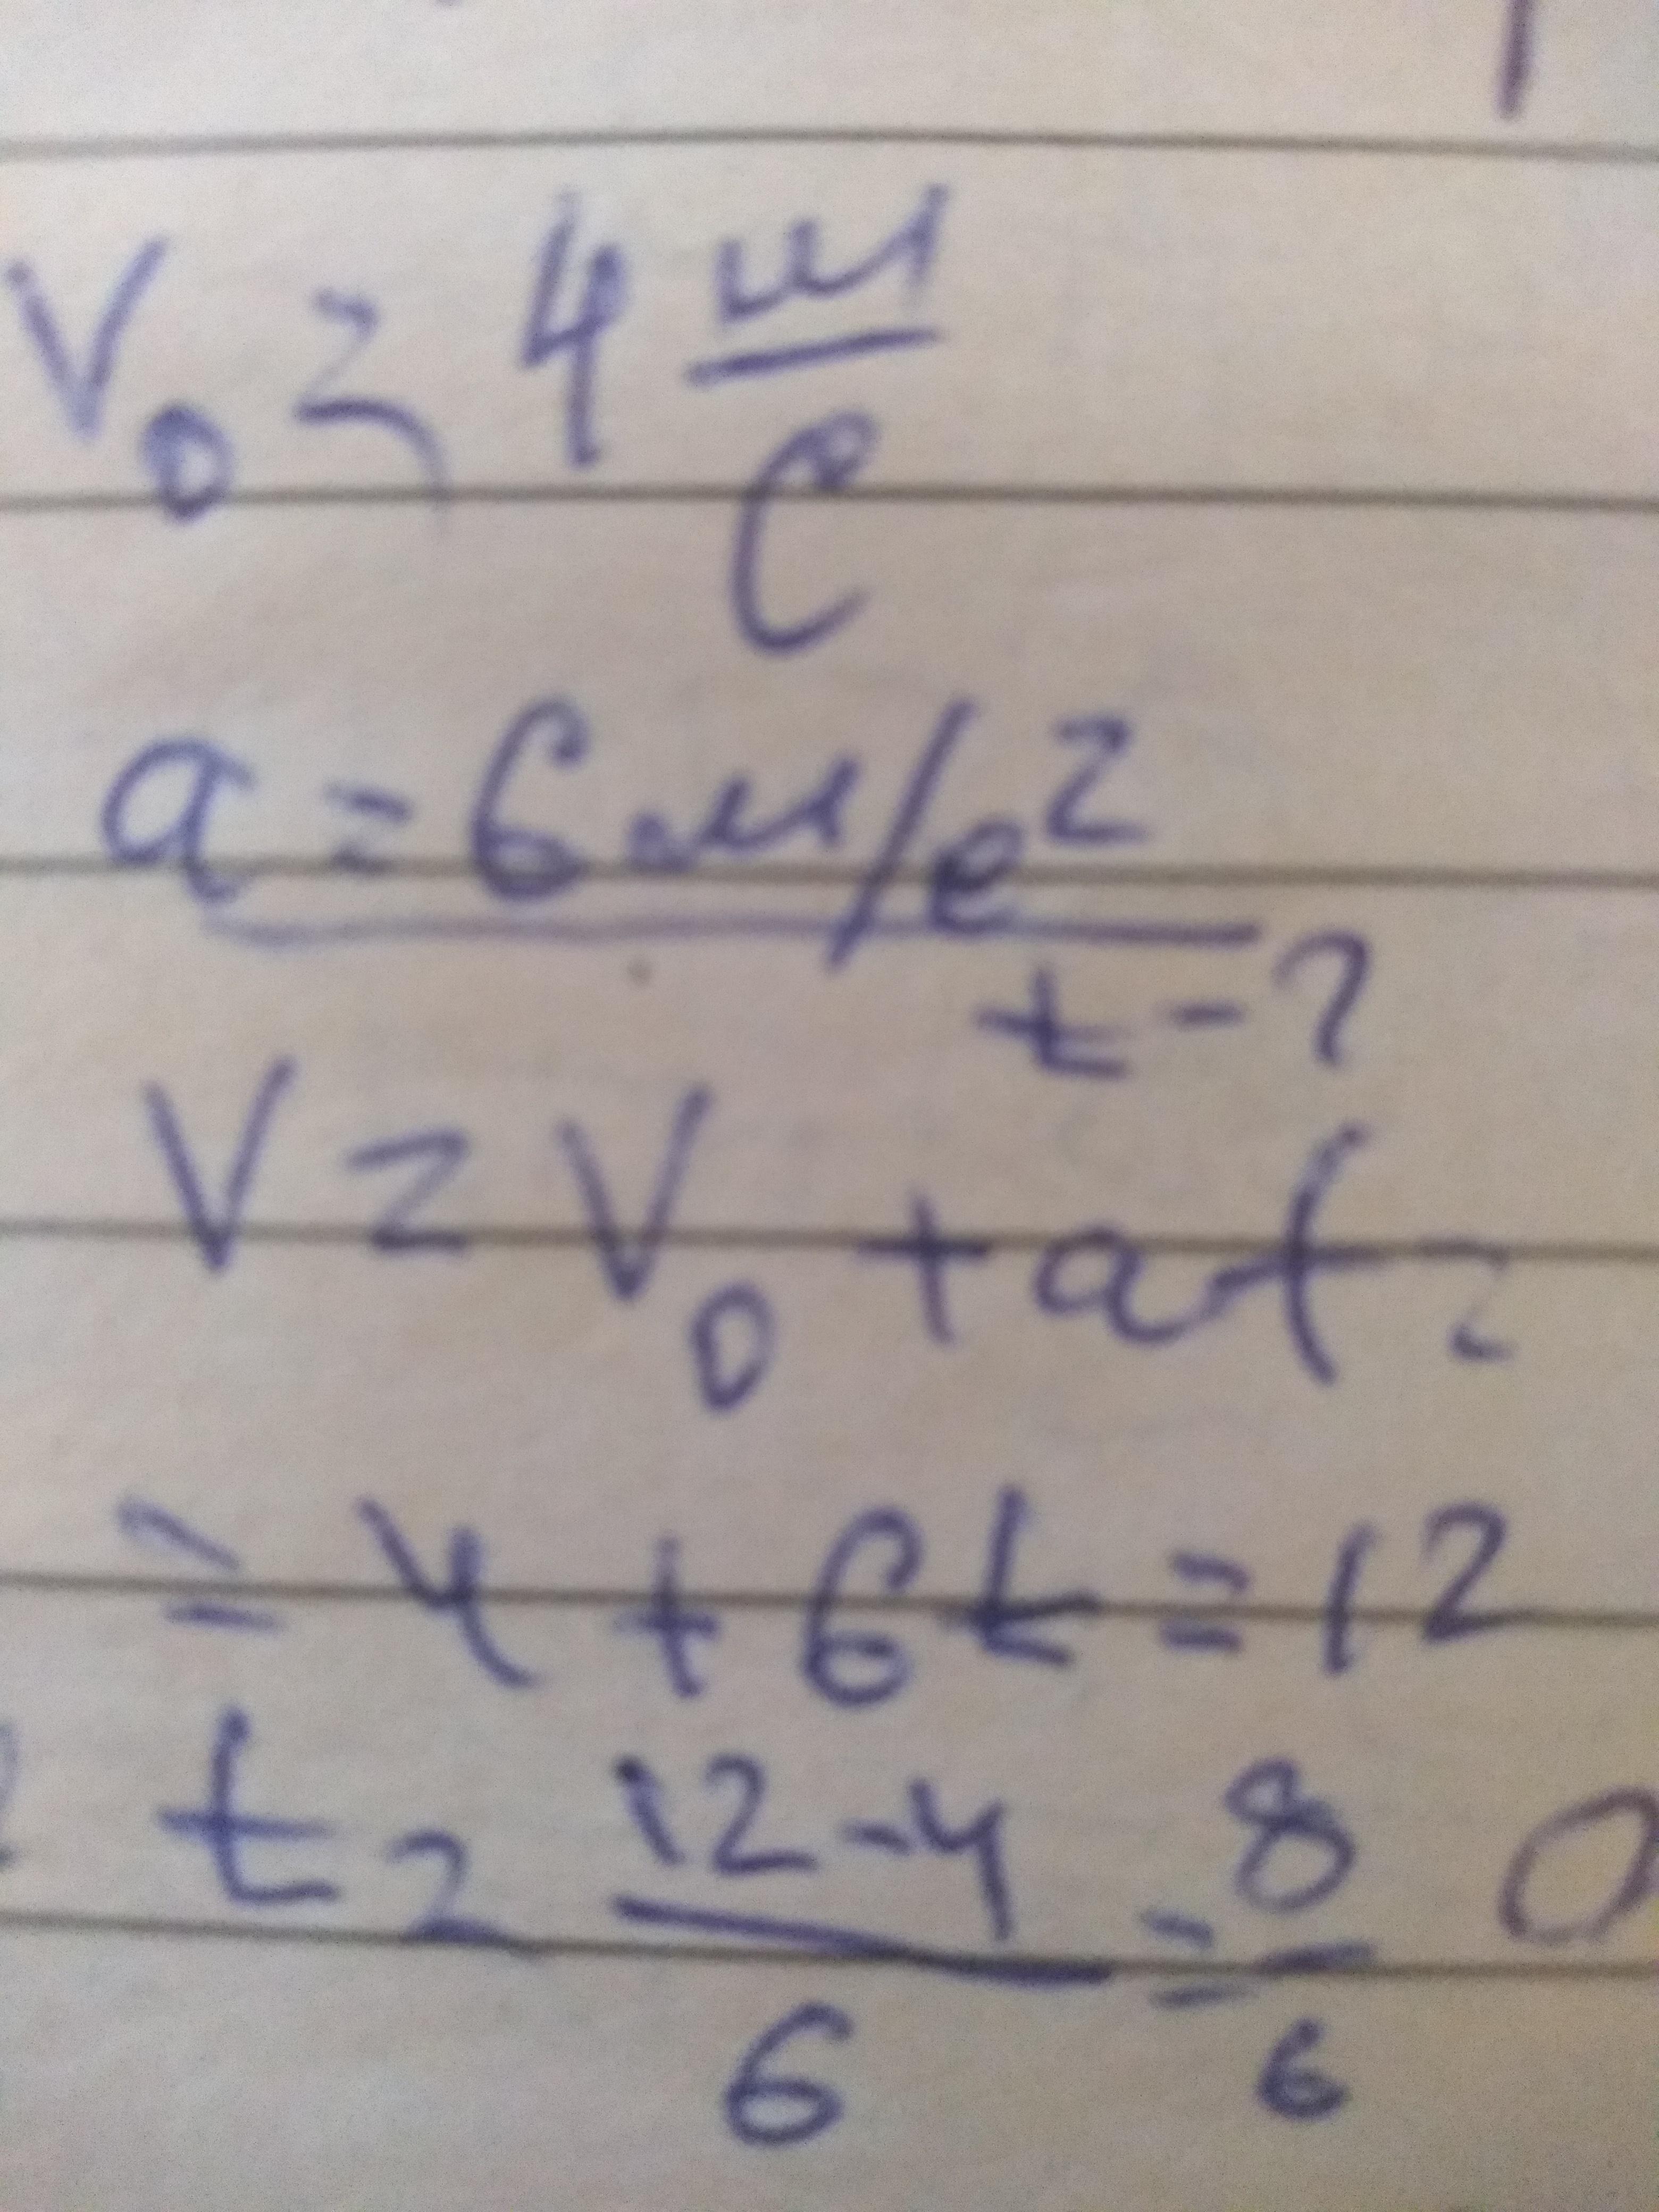 V₀ = 4 м/с
a = 6 м/с²
t - ?
V = V₀ + at =
= 4 + 6t = 12
t = (12-4)/6 = 8/6